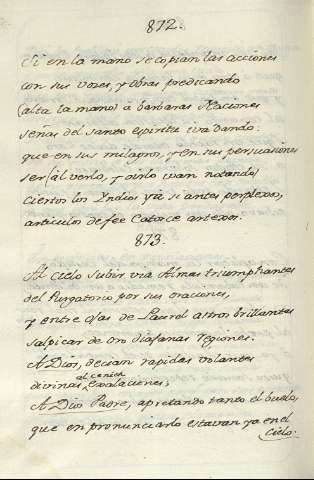 872.
Si en la mano se copian las acciones
con sus vozes, y obras predicando
(alta la mano) á barbaras Naciones
señas del santo espiritu iva dando:
que en sus milagros, y en sus persuasiones
ser (al verlo, y oirlo ivan notando)
ciertos los Yndios ya si antes perplexos,
articulos de fee Catorce artexos.
873.
Al Cielo subir via Almas triumphantes
del Purgatorio por sus oraciones,
y entre ojas de Laurel astros brillantes
salpicar de oro diafanas regiones.
A Dios, decian rapidas volantes
al cenit
divinas Exalaciones,
A Dios Padre, apretando tanto el buelo,
que en pronunciarlo estavan ya en el
Cielo.